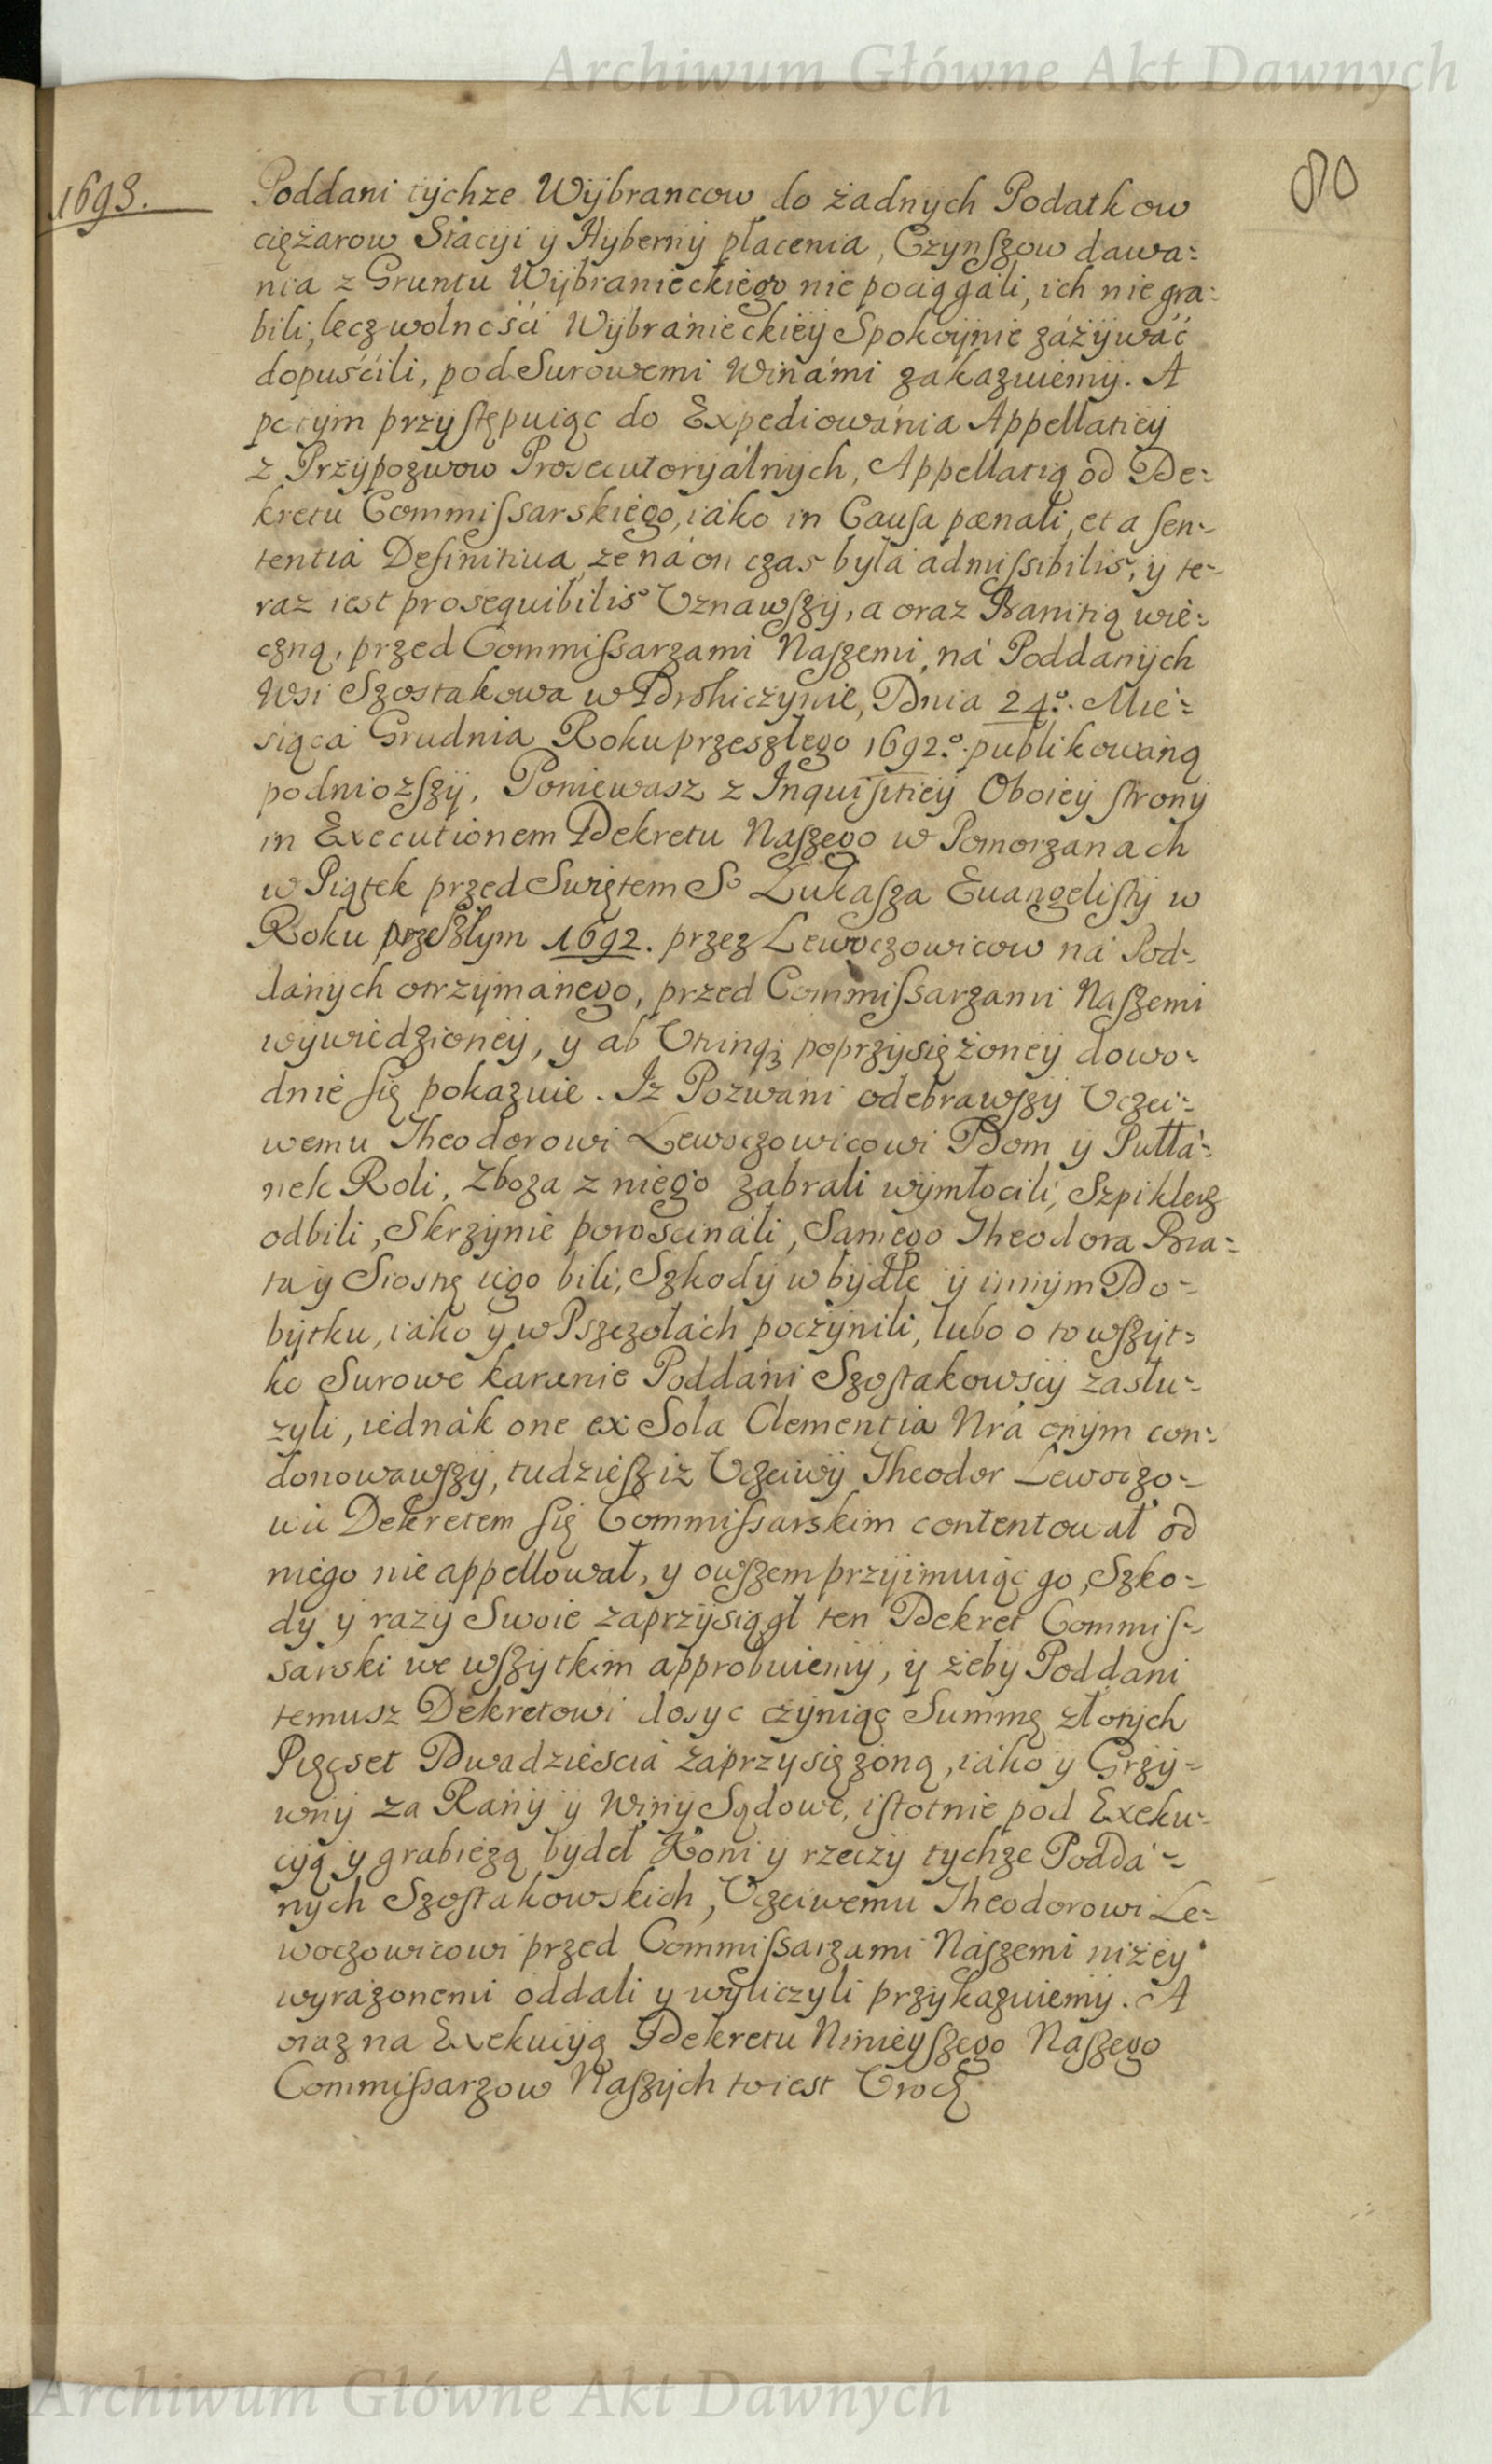 Archiwum Główne Akt Dawnych
1693.
80
Poddani tychze Wybrancow do żadnych Podatkow
ciężarow Stacyi y Hyberny płacenia, Czynſzow dawa=
nia z Gruntu Wybranieckiego nie pociągali, ich nie gra=
bili, lecz wolności Wybránieckiey Spokoynie záżywáć
dopuśćili, pod Surowemi Winámi zakazuiemy. A
potym przyſtępuiąc do Expediowánia Appellatiey
z Przypozwow Prosecutoryálnych, Appellatią od De=
kretu Commiſsarskiego, iáko in Cauſa pænali, et a ſen=
tentia Definitiua, że ná on czas była admiſsibilis, y te=
raz iest prosequibilis Uznawſzy, a oraz Banitią wie=
czną, przed Commiſsarzami Naſzemi, ná Poddanych
Wsi Szostakowa w Drohiczynie, Dnia 24º. Mie=
siąca Grudnia Roku przeszłego 1692º. publikowáną
podniozſzy, Poniewasz z Inquiſitiey Oboiey ſtrony
in Executionem Dekretu Naſzego w Pomorzanach
w Piątek przed Swiętem Sº Łukaſza Euangeliſty w
Roku przeſzłym 1692. przez Lewoczowicow ná Pod=
dánych otrzymánego, przed Commiſsarzami Naſzemi
wywiedzioney, y ab Utrinq; poprzysiężoney dowo=
dnie ſię pokazuie. Iż Pozwani odebrawſzy Uczci=
wemu Theodorowi Lewoczowicowi Dom y Pułłá=
nek Roli, Zboża z niego zabrali wymłocili, Szpiklerz
odbili, Skrzynie poroścináli, Samego Theodora Bra=
ta y Siostrę iego bili, Szkody w bydłe y innym Do=
bytku, iáko y w Pszczołách poczynili, lubo o to wſzyt=
ko Surowe karanie Poddáni Szoſtakowscy zasłu=
żyli, iednák one ex Sola Clementia Nrá onym con=
donowawſzy, tudzieſz iż Uczciwy Theodor Lewoczo=
wic Dekretem ſię Commiſsarskim contentował od
niego nie appellował, y owſzem przyimuiąc go, Szko=
dy y razy Swoie zaprzysiągł ten Dekret Commiſ=
sarski we wſzytkim approbuiemy, y żeby Poddani
temusz Dekretowi dosyc czyniąc Summę złotych
Pięcset Dwadzieścia zaprzysiężoną, iáko y Grzy=
wny za Rany y Winy Sądowe, iſtotnie pod Exeku=
cyą y grabieżą bydeł Koni y rzeczy tychże Poddá=
nych Szoſtakowskich, Uczciwemu Theodorowi Le=
woczowicowi przed Commiſsarzami Nászemi niżey
wyrażonemi oddali y wyliczyli przykazuiemy. A
oraz na Exekucyą Dekretu Ninieyſzego Naſzego
Commiſsarzow Naſzych to iest Urodz
Archiwum Główne Akt Dawnych